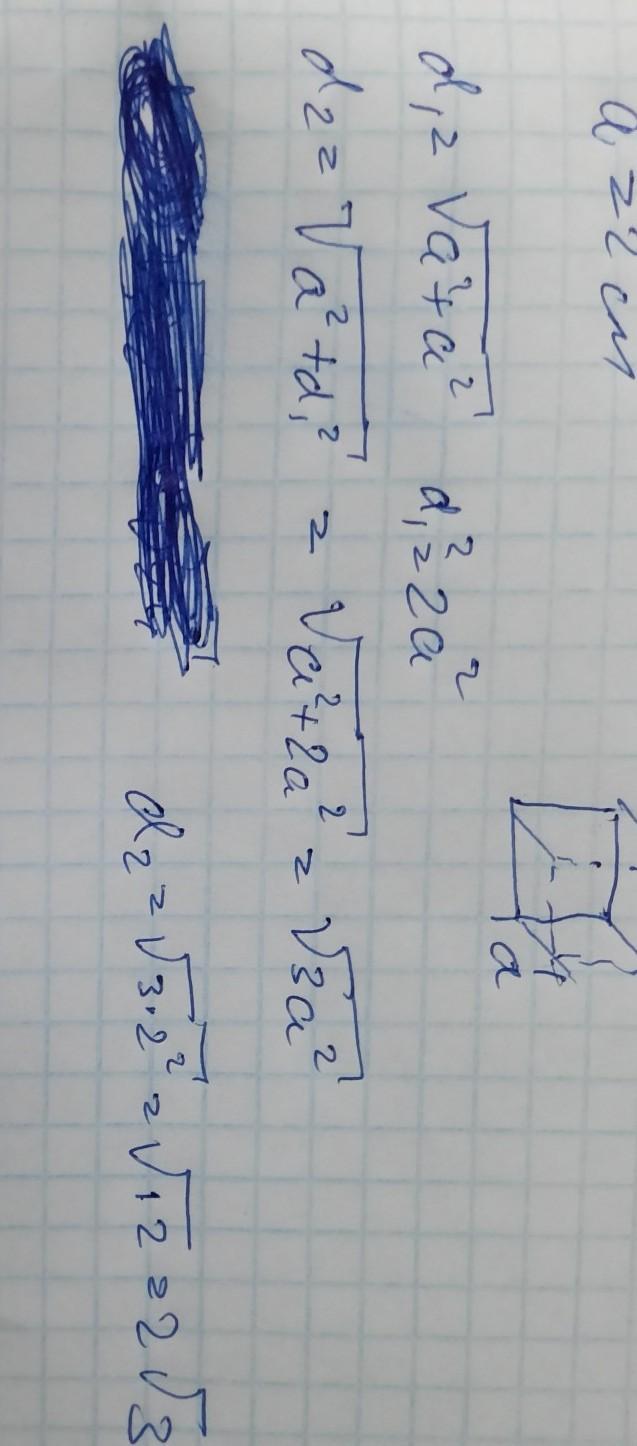 a = 2 cm
a
d₁ = √(a² + a²) d₁² = 2a²
d₂ = √(a² + d₁²) = √(a² + 2a²) = √(3a²)
d₂ = √(3·2²) = √12 = 2√3